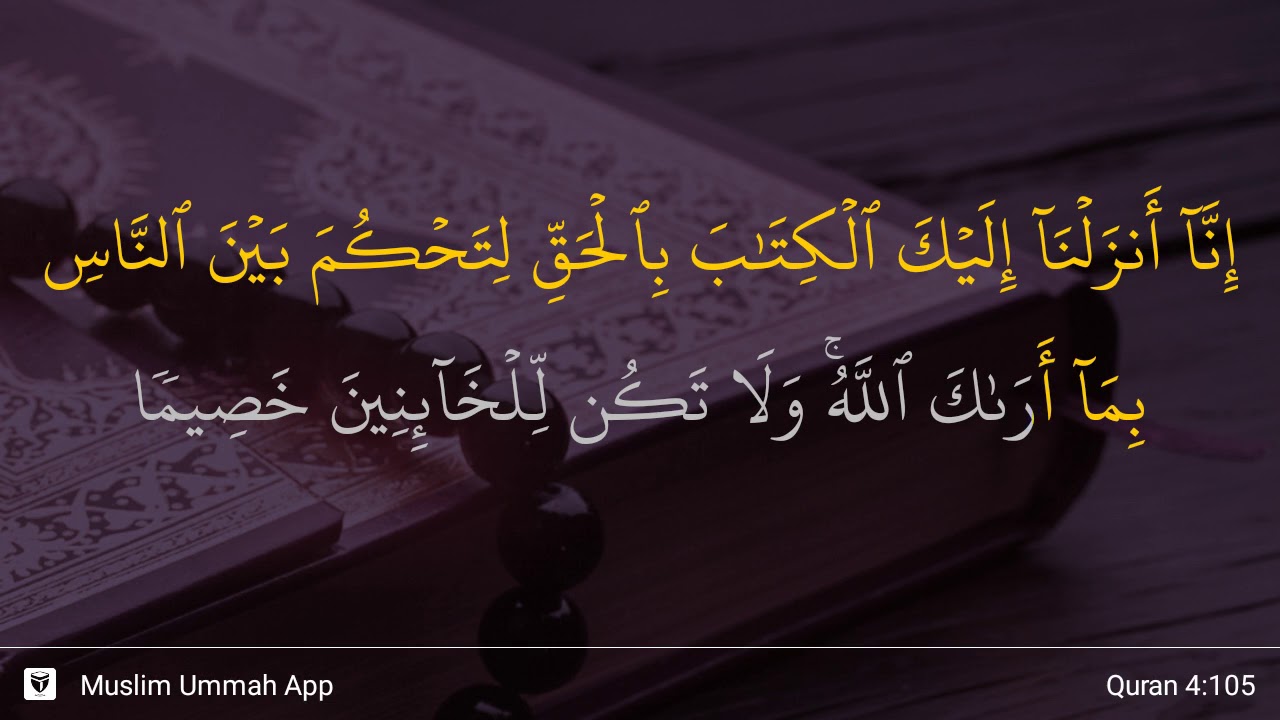 إِنَّآ أَنزَلْنَآ إِلَيْكَ ٱلْكِتَـٰبَ بِٱلْحَقِّ لِتَحْكُمَ بَيْنَ ٱلنَّاسِ
بِمَآ أَرَىٰكَ ٱللَّهُ ۚ وَلَا تَكُن لِّلْخَآئِنِينَ خَصِيمًا
Muslim Ummah App
Quran 4:105